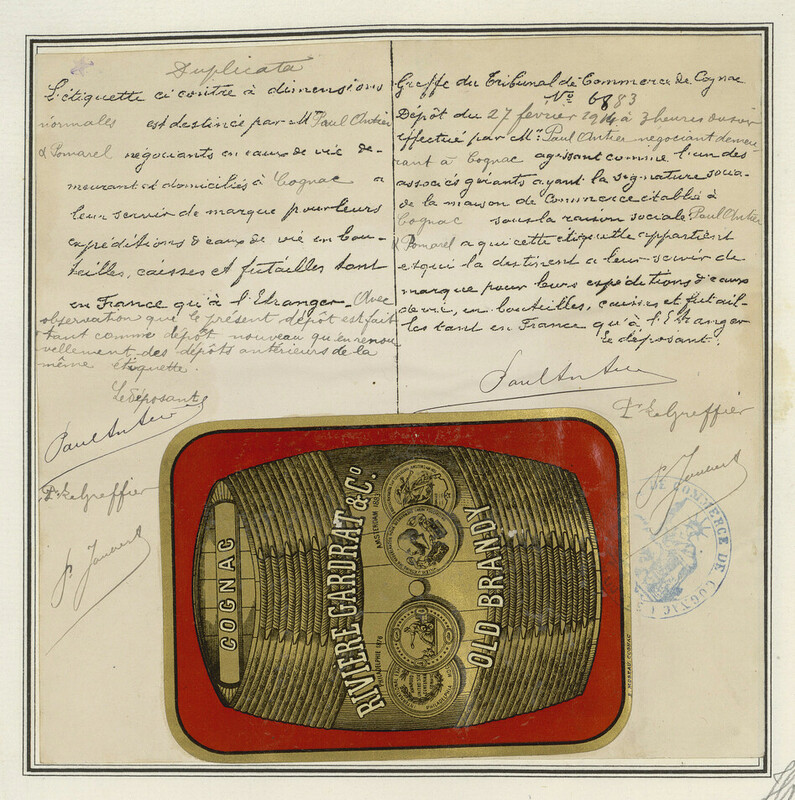 Duplicata
L'étiquette ci contre à dimensions
normales est destinée par Mrs Paul Antier
& Pomarel négociants en eaux de vie de-
meurant et domiciliés à Cognac a
leur servir de marque pour leurs
expéditions d'eaux de vie en bou-
teilles, caisses et futailles tant
en France qu'à l'Etranger. Avec
observation que le présent dépôt est fait
tant comme dépôt nouveau qu'en renou
vellement des dépôts antérieurs de la
même étiquette.
Le déposant
Paul Antier
Pr Le Greffier
Greffe du Tribunal de Commerce de Cognac
No 6883
Dépôt du 27 février 1914 à 3 heures du soir
effectué par Mr. Paul Antier négociant demeu-
rant à Cognac agissant comme l'un des
associés gérants ayant la signature socia-
le de la maison de Commerce établie à
Cognac sous la raison sociale Paul Antier
& Pomarel a qui cette étiquette appartient
et qui la destinent a leur servir de
marque pour leurs expéditions d'eaux
de vie, en bouteilles, caisses et futail-
les tant en France qu'à l'Etranger
Le déposant.
Paul Antier
Pr Le Greffier
DE COMMERCE DE COGNAC
COGNAC
RIVIERE GARDRAT & Co.
AMSTERDAM 1883
PHILADELPHIE 1876
OLD BRANDY